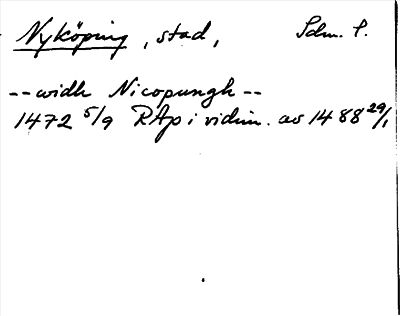 Nyköping, stad, Sdm. l.
-- widh Nicopungh --
1472 5/9 RAp i vidim. av 1488 29/1